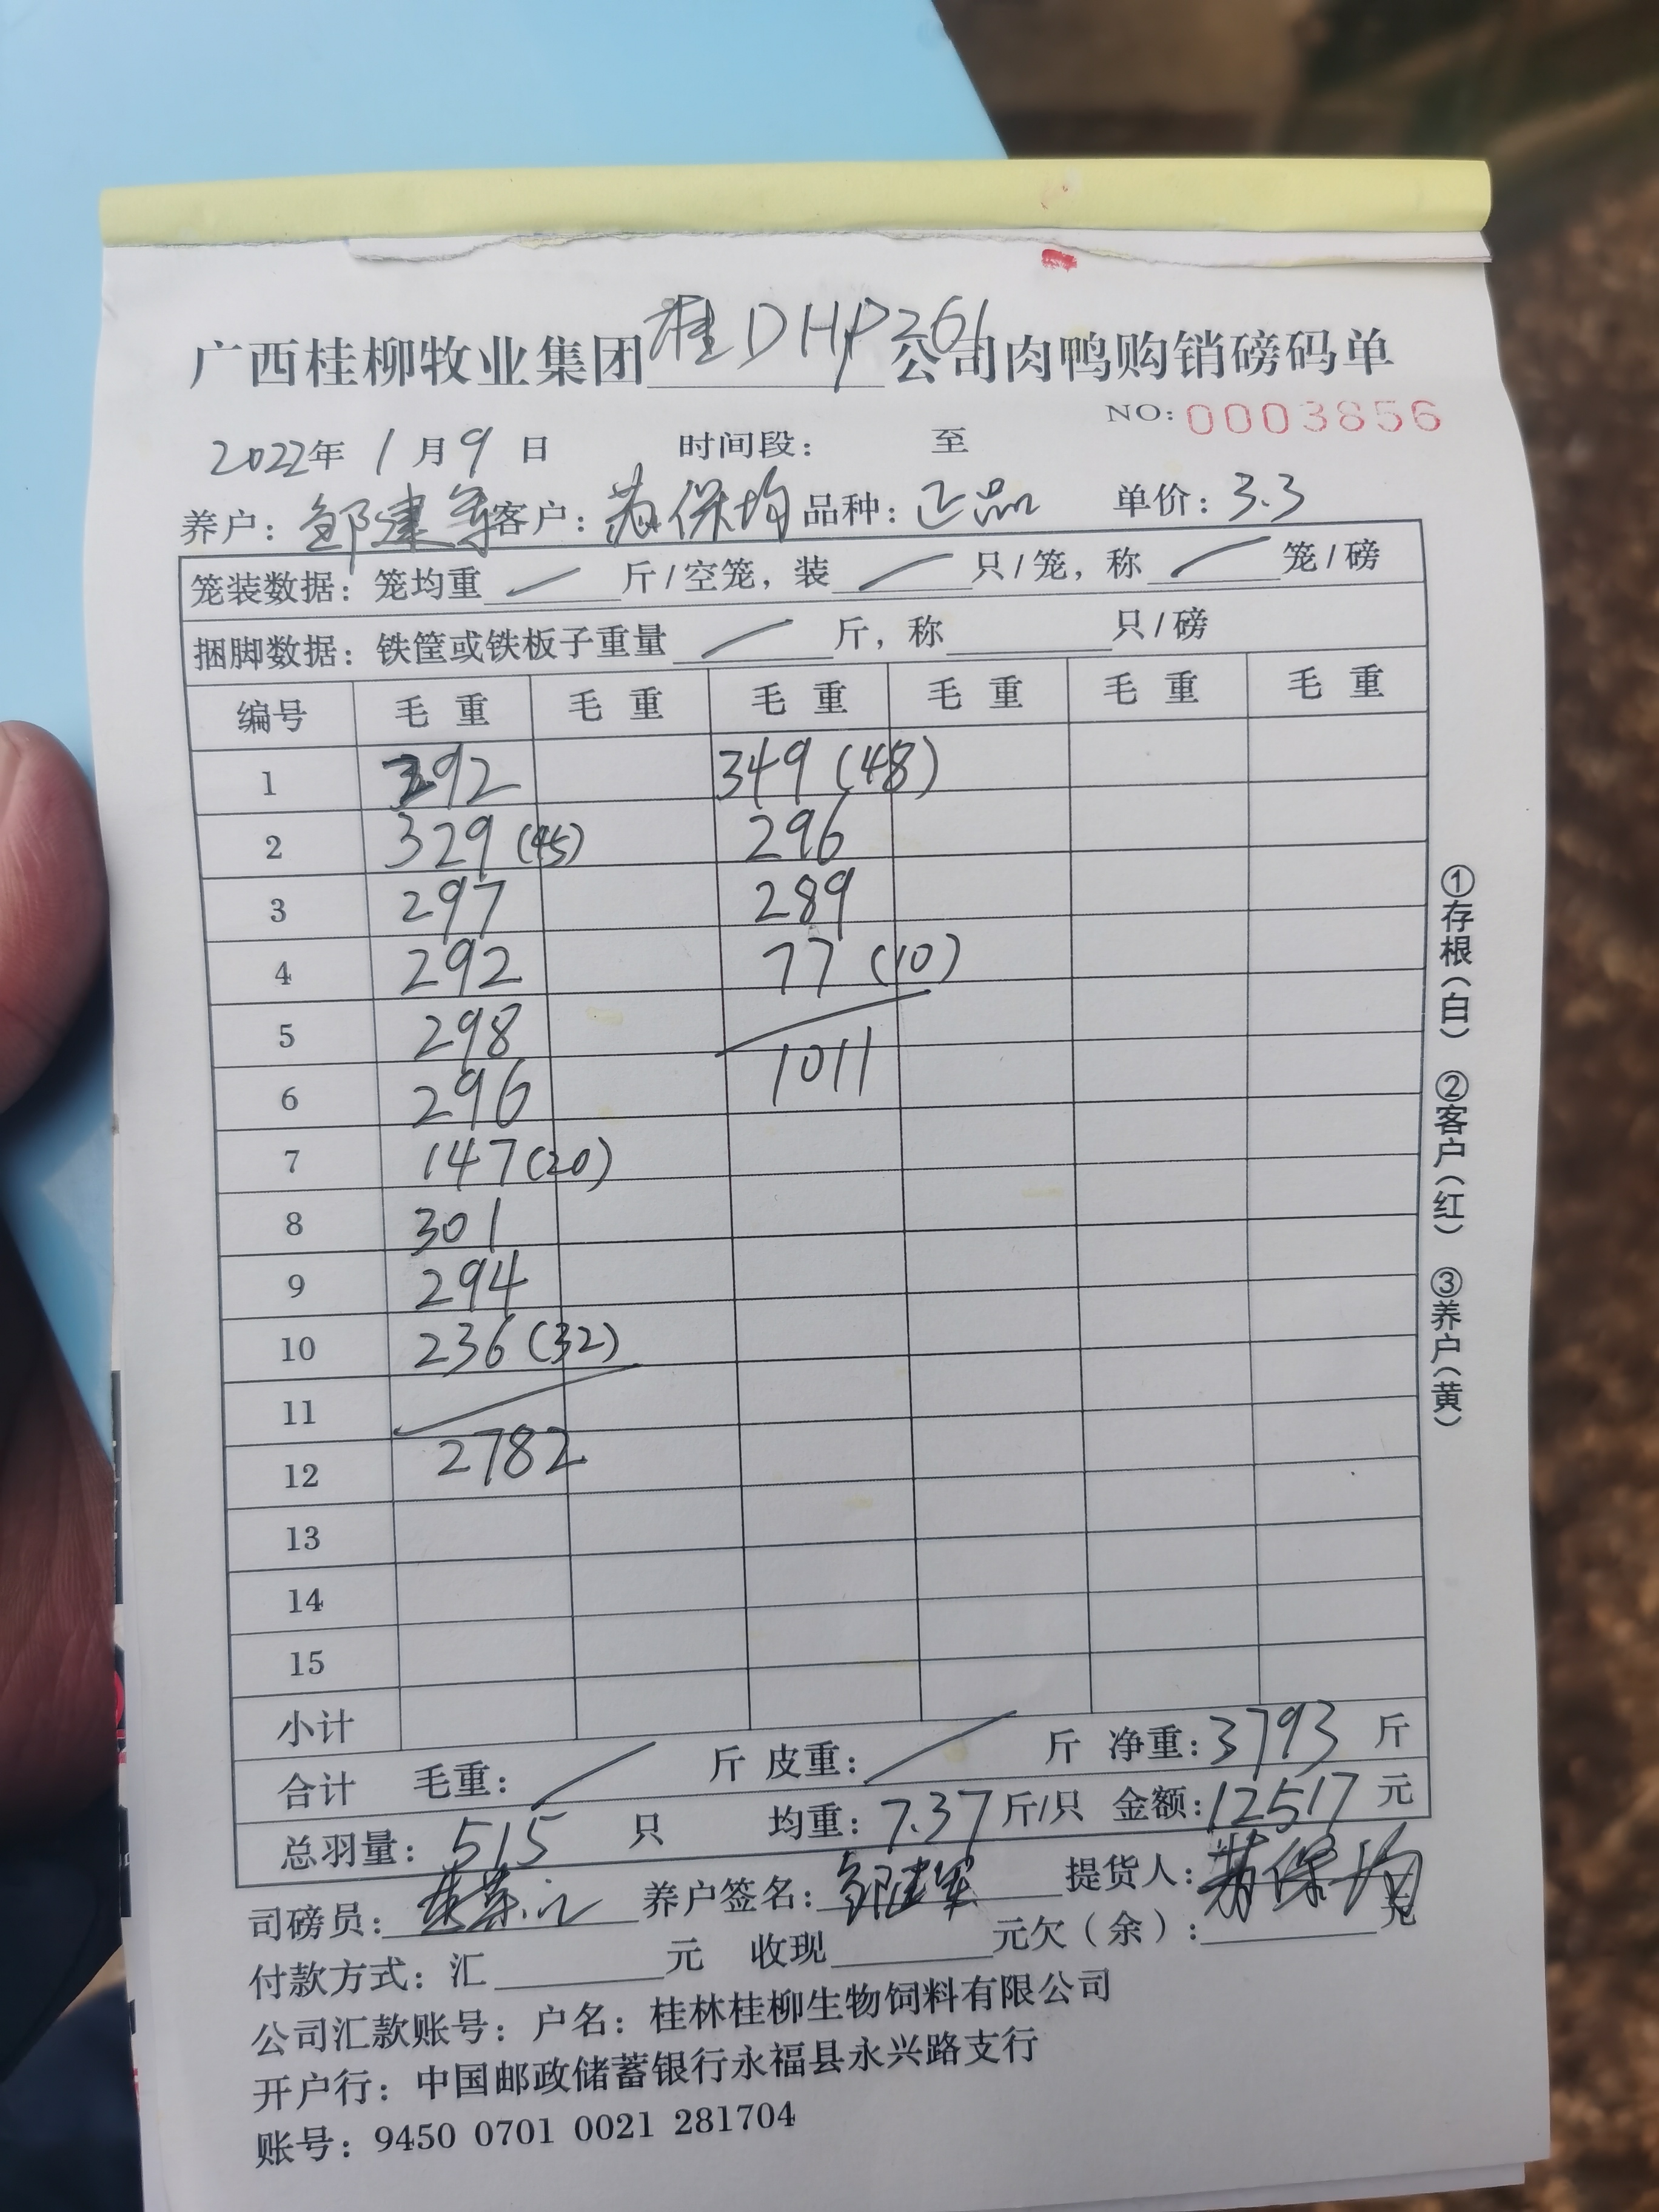 广西桂柳牧业集团桂DHP261公司肉鸭购销磅码单
NO: 0003856
2022年 1月 9日 时间段： 至
养户：邹建军 客户：苏保均 品种：正品 单价：3.3
笼装数据：笼均重 / 斤/空笼，装 / 只/笼，称 / 笼/磅
捆脚数据：铁筐或铁板子重量 / 斤，称 只/磅
编号 毛重 毛重 毛重 毛重 毛重 毛重
1 292 349 (48)
2 329 (45) 296
3 297 289
4 292 77 (10)
5 298 1011
6 296
7 147 (20)
8 301
9 294
10 236 (32)
11
12 2782
13
14
15
小计
合计 毛重： / 斤 皮重： / 斤 净重：3793 斤
总羽量：515 只 均重：7.37斤/只 金额：12517元
司磅员： 养户签名：邹建军 提货人：苏保均
付款方式：汇 元 收现 元欠（余）： 元
公司汇款账号：户名：桂林桂柳生物饲料有限公司
开户行：中国邮政储蓄银行永福县永兴路支行
账号：9450 0701 0021 281704
①存根（白） ②客户（红） ③养户（黄）